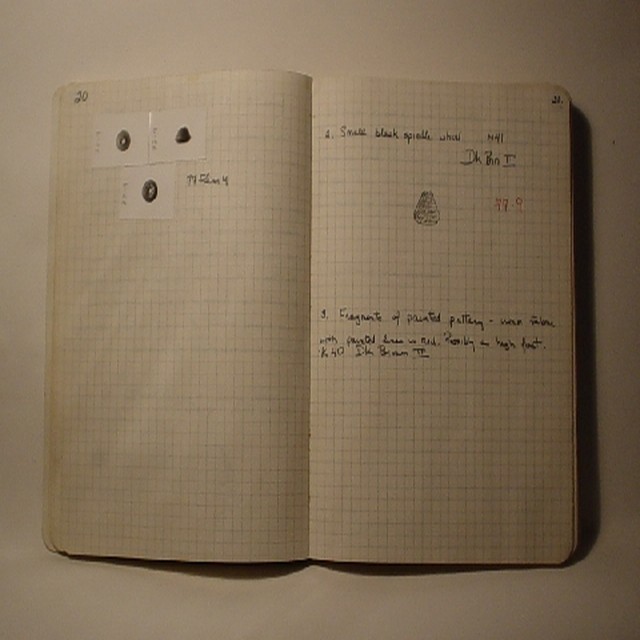 20
21.
2. Small black spindle whorl N41
Dk Brn II
77-9
3. Fragments of painted pottery -
with painted lines in Red. Possibly a high foot.
K40 Dk Brown II